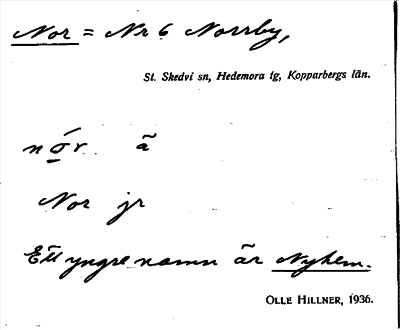 Nor = Nr 6 Norrby,
St. Skedvi sn, Hedemora tg, Kopparbergs län.
nó̱r. ã
Nor jr
Ett yngre namn är Nyhem.
OLLE HILLNER, 1936.